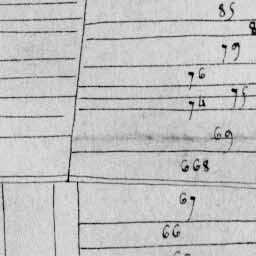 85
79
76
75
74
69
668
67
66